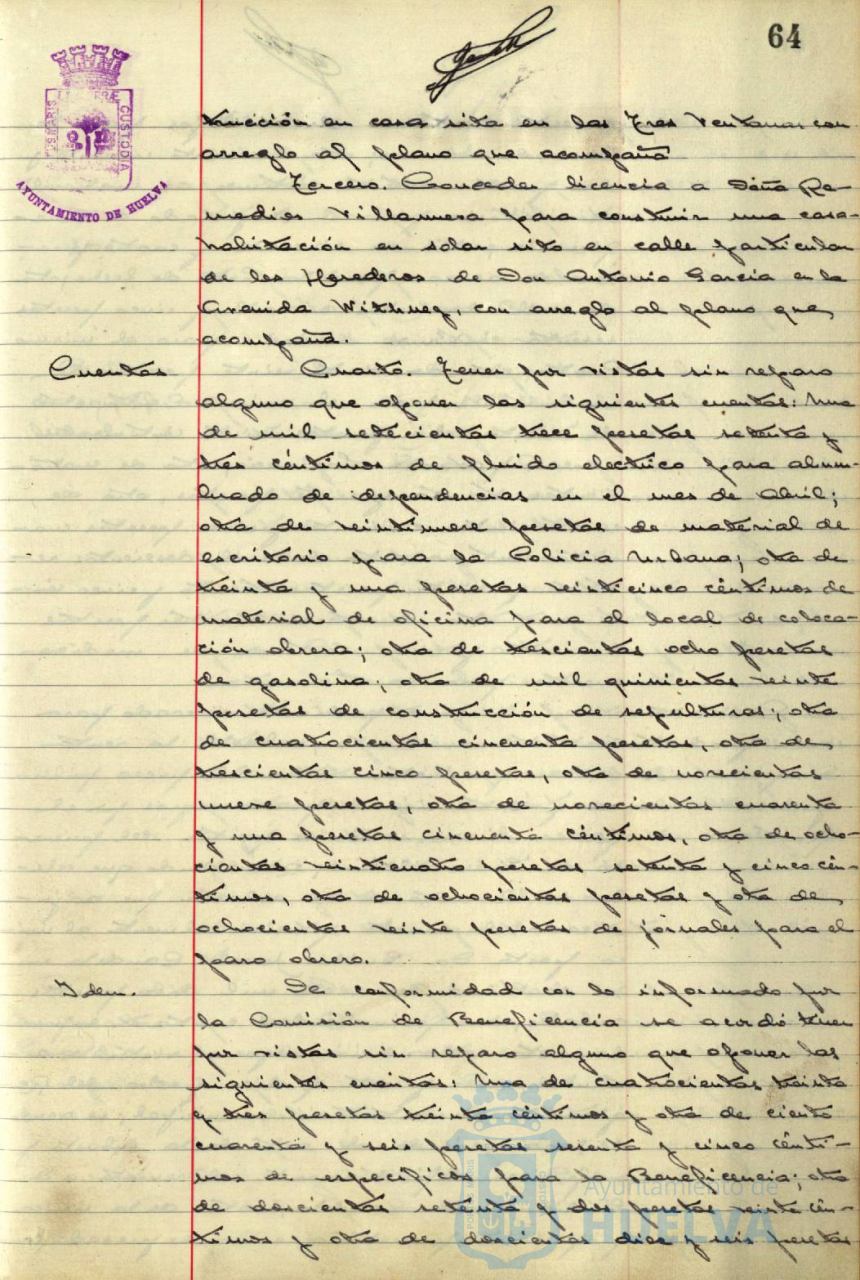 64
AYUNTAMIENTO DE HUELVA
trucción en casa sita en las Tres Ventanas con
arreglo al plano que acompaña
Tercero. Conceder licencia a Doña Re-
medios Villanueva para construir una casa-
habitación en solar sito en calle particular
de los Herederos de Don Antonio García en la
Avenida con arreglo al plano que
acompaña.
Cuentas Cuarto. Tener por vistas sin reparo
alguno que oponer las siguientes cuentas: Una
de mil setecientas trece pesetas setenta y
tres céntimos de fluido electrico para alum-
brado de dependencias en el mes de Abril;
otra de veintinueve pesetas de material de
escritorio para la Policia Urbana; otra de
treinta y una pesetas veinticinco céntimos de
material de oficina para el local de coloca-
ción obrera; otra de trescientas ocho pesetas
de gasolina; otra de mil quinientas veinte
pesetas de construcción de sepulturas; otra
de cuatrocientas cincuenta pesetas, otra de
trescientas cinco pesetas, otra de novecientas
nueve pesetas, otra de novecientas cuarenta
y una pesetas cincuenta céntimos, otra de ocho-
cientas veinticuatro pesetas setenta y cinco cén-
timos, otra de ochocientas pesetas y otra de
ochocientas veinte pesetas de jornales para el
paro obrero.
Idem. De conformidad con lo informado por
la Comisión de Beneficencia se acordó tener
por vistas sin reparo alguno que oponer las
siguientes cuentas: Una de cuatrocientas treinta
y tres pesetas treinta céntimos y otra de ciento
cuarenta y seis pesetas sesenta y cinco cénti-
mos de especificos para la Beneficencia; otra
de doscientas setenta y dos pesetas veinte cén-
timos y otra de doscientas diez y seis pesetas
Ayuntamiento de
HUELVA